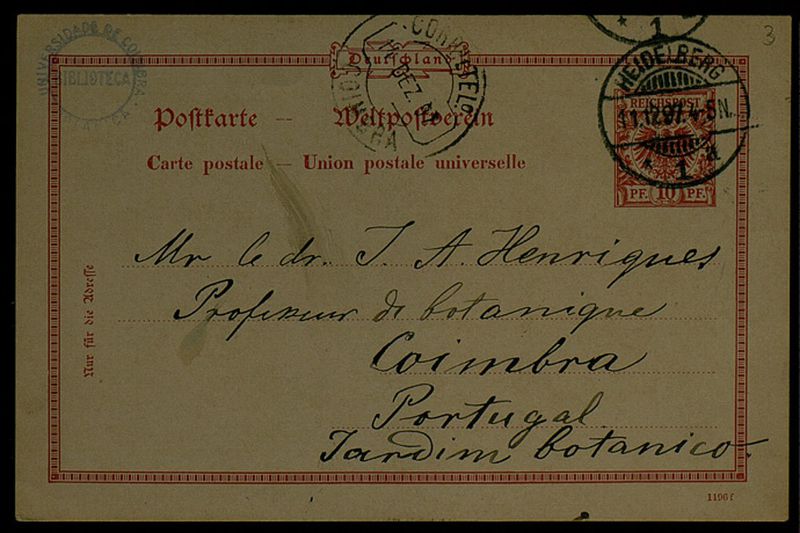 UNIVERSIDADE DE COIMBRA
BIBLIOTECA
CORREIO E TELº
DEZ. 97
COIMBRA
1
3
HEIDELBERG
11.12.97.4-5N.
* 1 a
Deutschland
REICHSPOST
PF. 10 PF.
Postkarte — Weltpostverein
Carte postale — Union postale universelle
Nur für die Adresse
Mr le dr. J. A. Henriques
Professeur de botanique
Coimbra
Portugal
Jardim botanico.
1196f